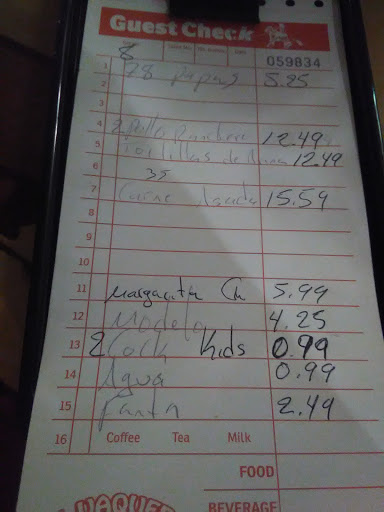 Guest Check
059834
8
1
2 28 papas 8.25
4 2 Pollo Ranchero 12.49
5 Tortillas de 12.49
6 35
7 Carne Asada 15.59
8
9
10
11 Margarita Ch 5.99
12 Modelo 4.25
13 2 Kids 0.99
14 Agua 0.99
15 Fanta 2.49
16 Coffee Tea Milk
FOOD
BEVERAGE